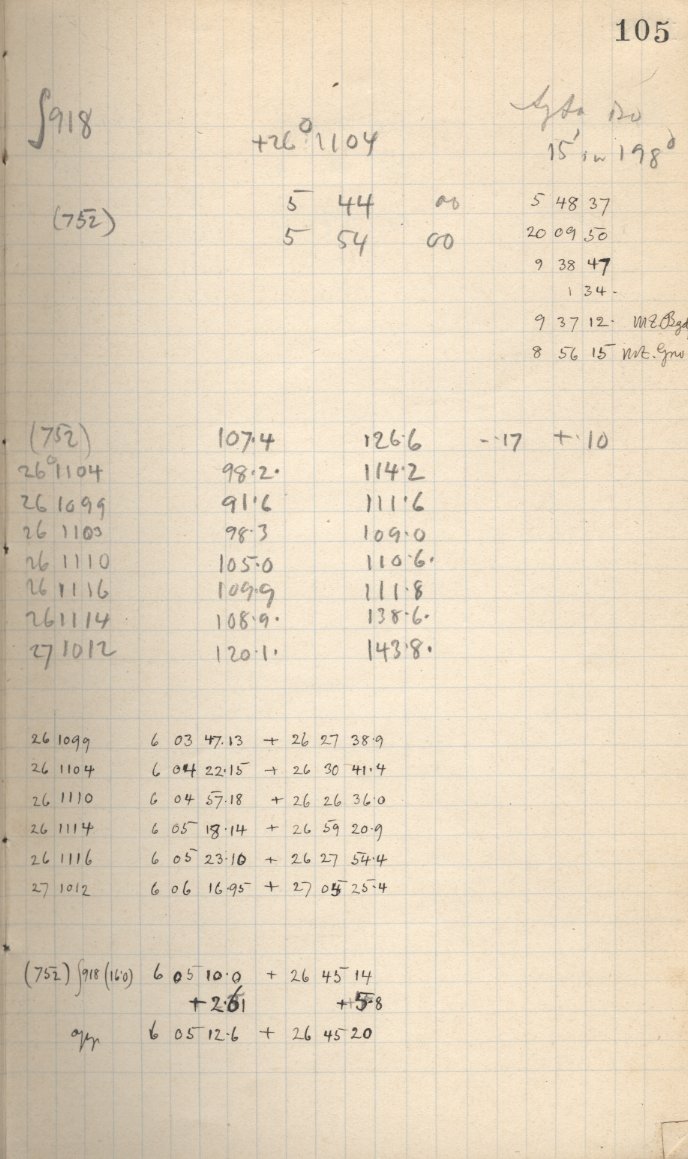 105
∫918
+26° 1104
150
15' in 198°
(752)
5 44 00
5 54 00
5 48 37
20 09 50
9 38 47
1 34.
9 37 12. MZ.
8 56 15 mt.
(752) 107.4 126.6 -.17 +.10
26° 1104 98.2. 114.2
26 1099 91.6 111.6
26 1103 98.3 109.0
26 1110 105.0 110.6.
26 1116 109.9 111.8
26 1114 108.9. 138.6.
27 1012 120.1. 143.8.
26 1099 6 03 47.13 + 26 27 38.9
26 1104 6 04 22.15 + 26 30 41.4
26 1110 6 04 57.18 + 26 26 36.0
26 1114 6 05 18.14 + 26 59 20.9
26 1116 6 05 23.10 + 26 27 54.4
27 1012 6 06 16.95 + 27 05 25.4
(752) ∫918 (16.0) 6 05 10.0 + 26 45 14
+2.61 +5.8
app 6 05 12.6 + 26 45 20